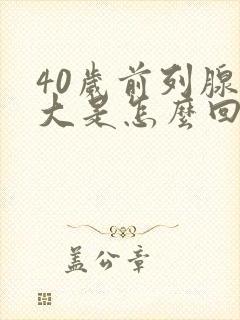 40歲前列腺
大是怎麼回
蓋公章